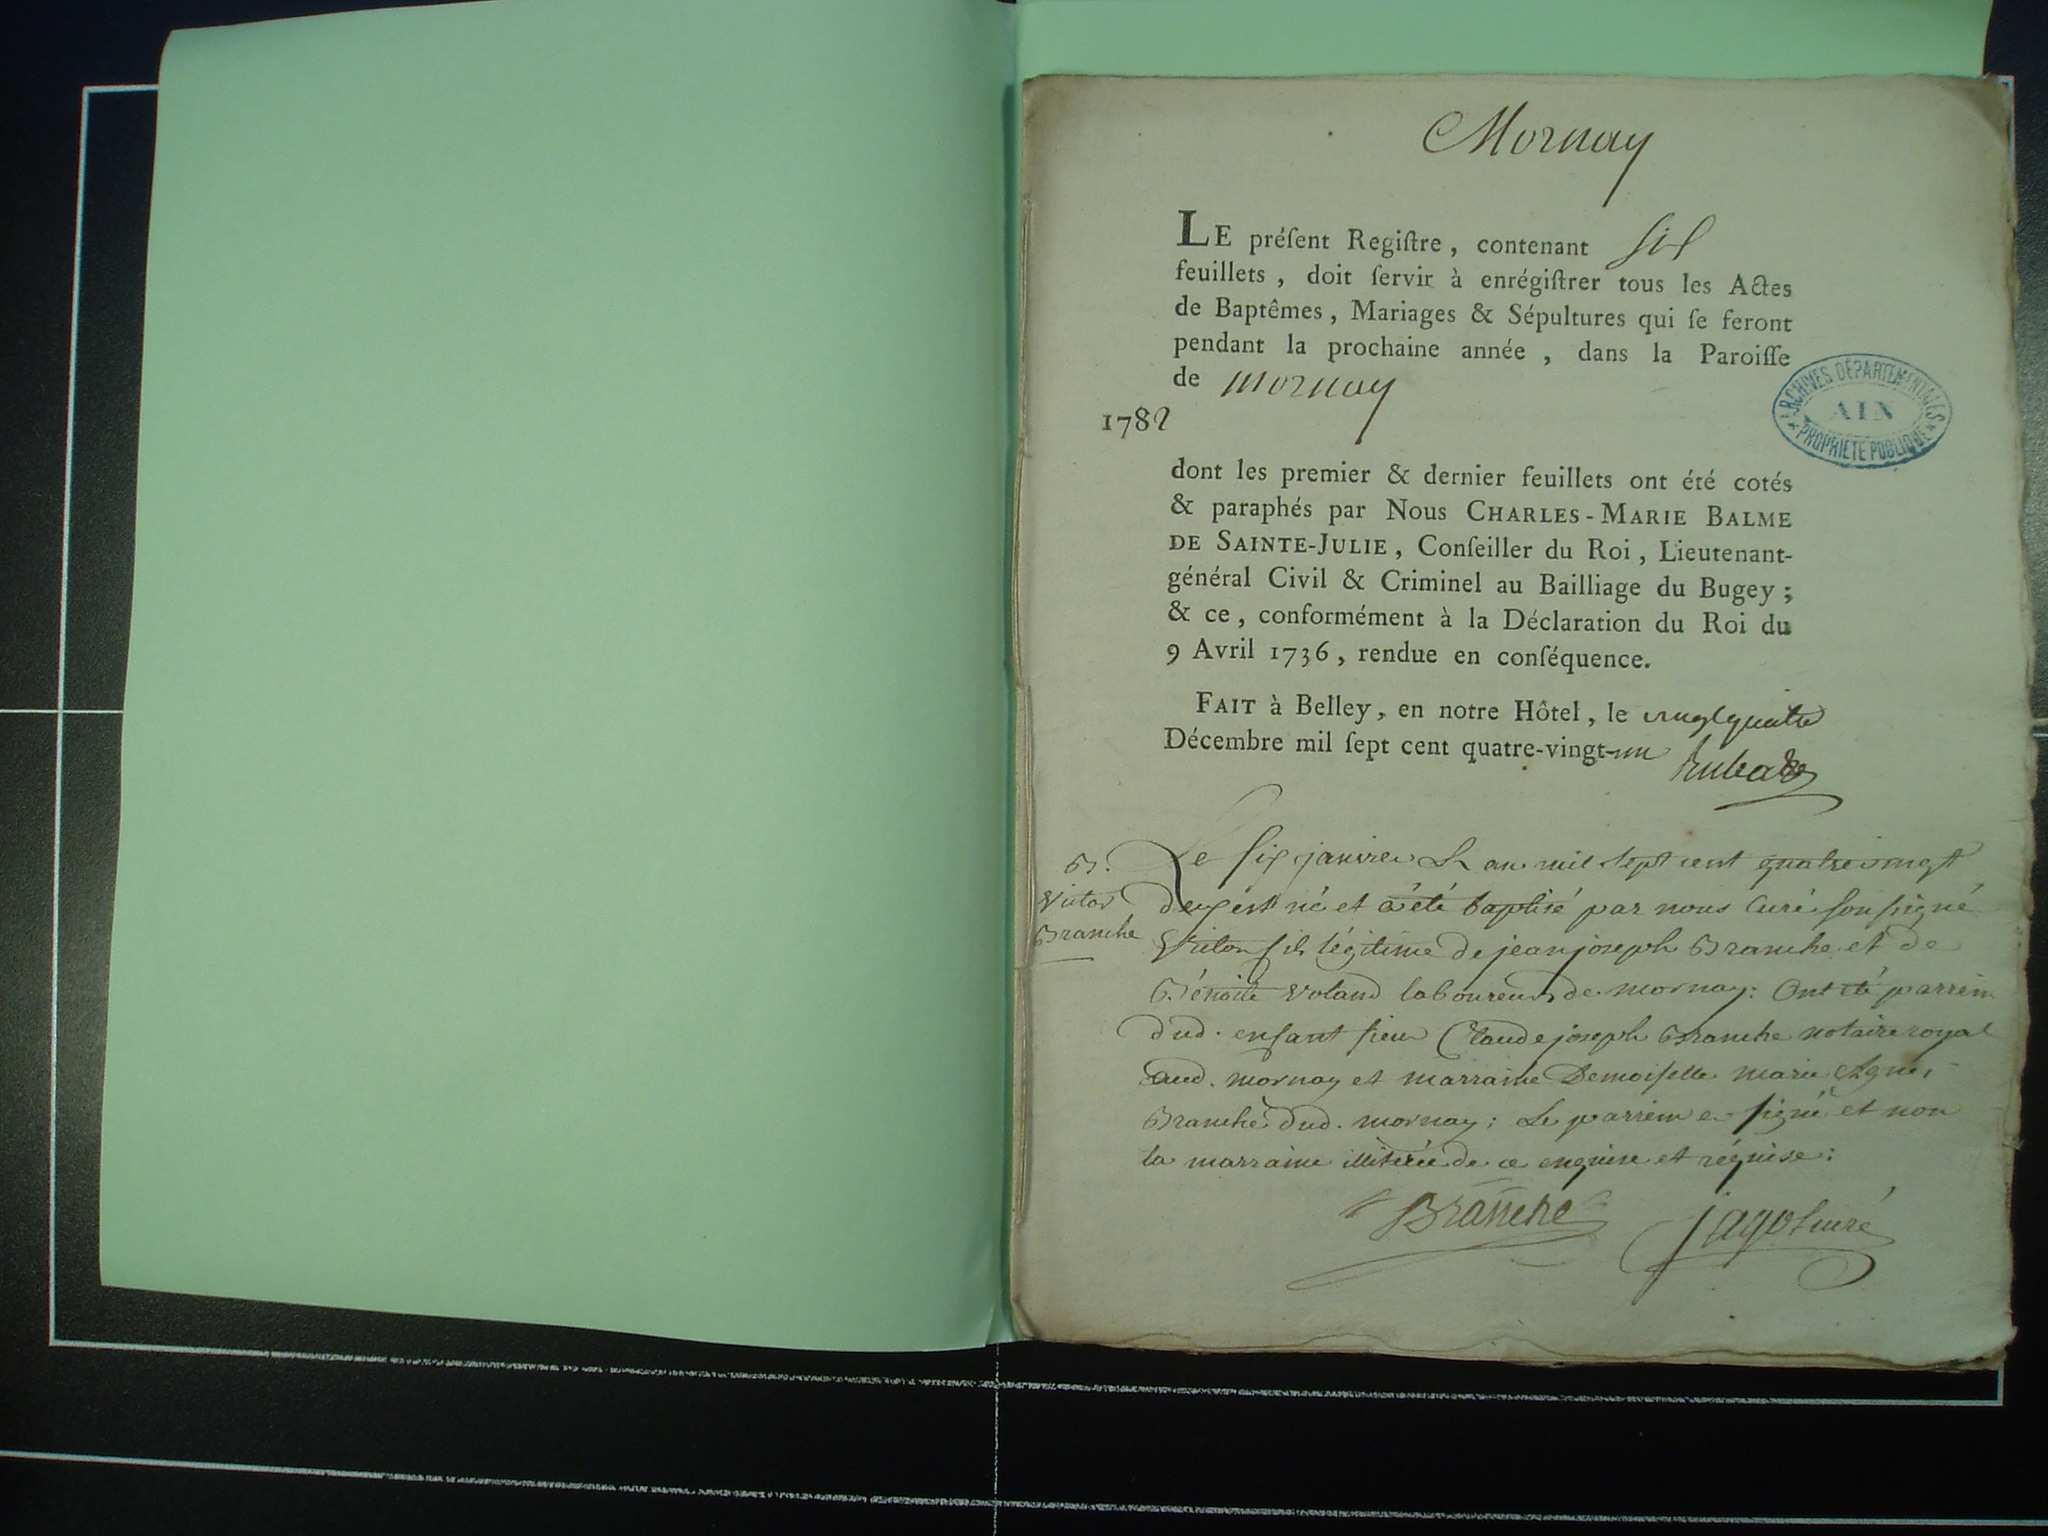 Mornay
LE préſent Regiſtre, contenant six
feuillets, doit ſervir à enrégiſtrer tous les Actes
de Baptêmes, Mariages & Sépultures qui ſe feront
pendant la prochaine année, dans la Paroiſſe
de mornay
1782
ARCHIVES DÉPARTEMENTALES
AIN
PROPRIÉTÉ PUBLIQUE
dont les premier & dernier feuillets ont été cotés
& paraphés par Nous CHARLES-MARIE BALME
DE SAINTE-JULIE, Conſeiller du Roi, Lieutenant-
général Civil & Criminel au Bailliage du Bugey;
& ce, conformément à la Déclaration du Roi du
9 Avril 1736, rendue en conſéquence.
FAIT à Belley, en notre Hôtel, le vingt quatre
Décembre mil ſept cent quatre-vingt-un
B.
Victor
Branche
Le six janvier L'an mil sept cent quatre vingt
deux est né et a été baptisé par nous Curé soussigné
Victor fils légitime de jean joseph Branche et de
Bénoite Voland laboureurs de mornay: Ont été parrein
dud. enfant sieur Claude joseph Branche notaire royal
aud. mornay et marraine Demoiselle marie Agnès
Branche dud. mornay; Le parrein a signé et non
la marraine illitérée de ce enquise et réquise:
Branche
jagot curé